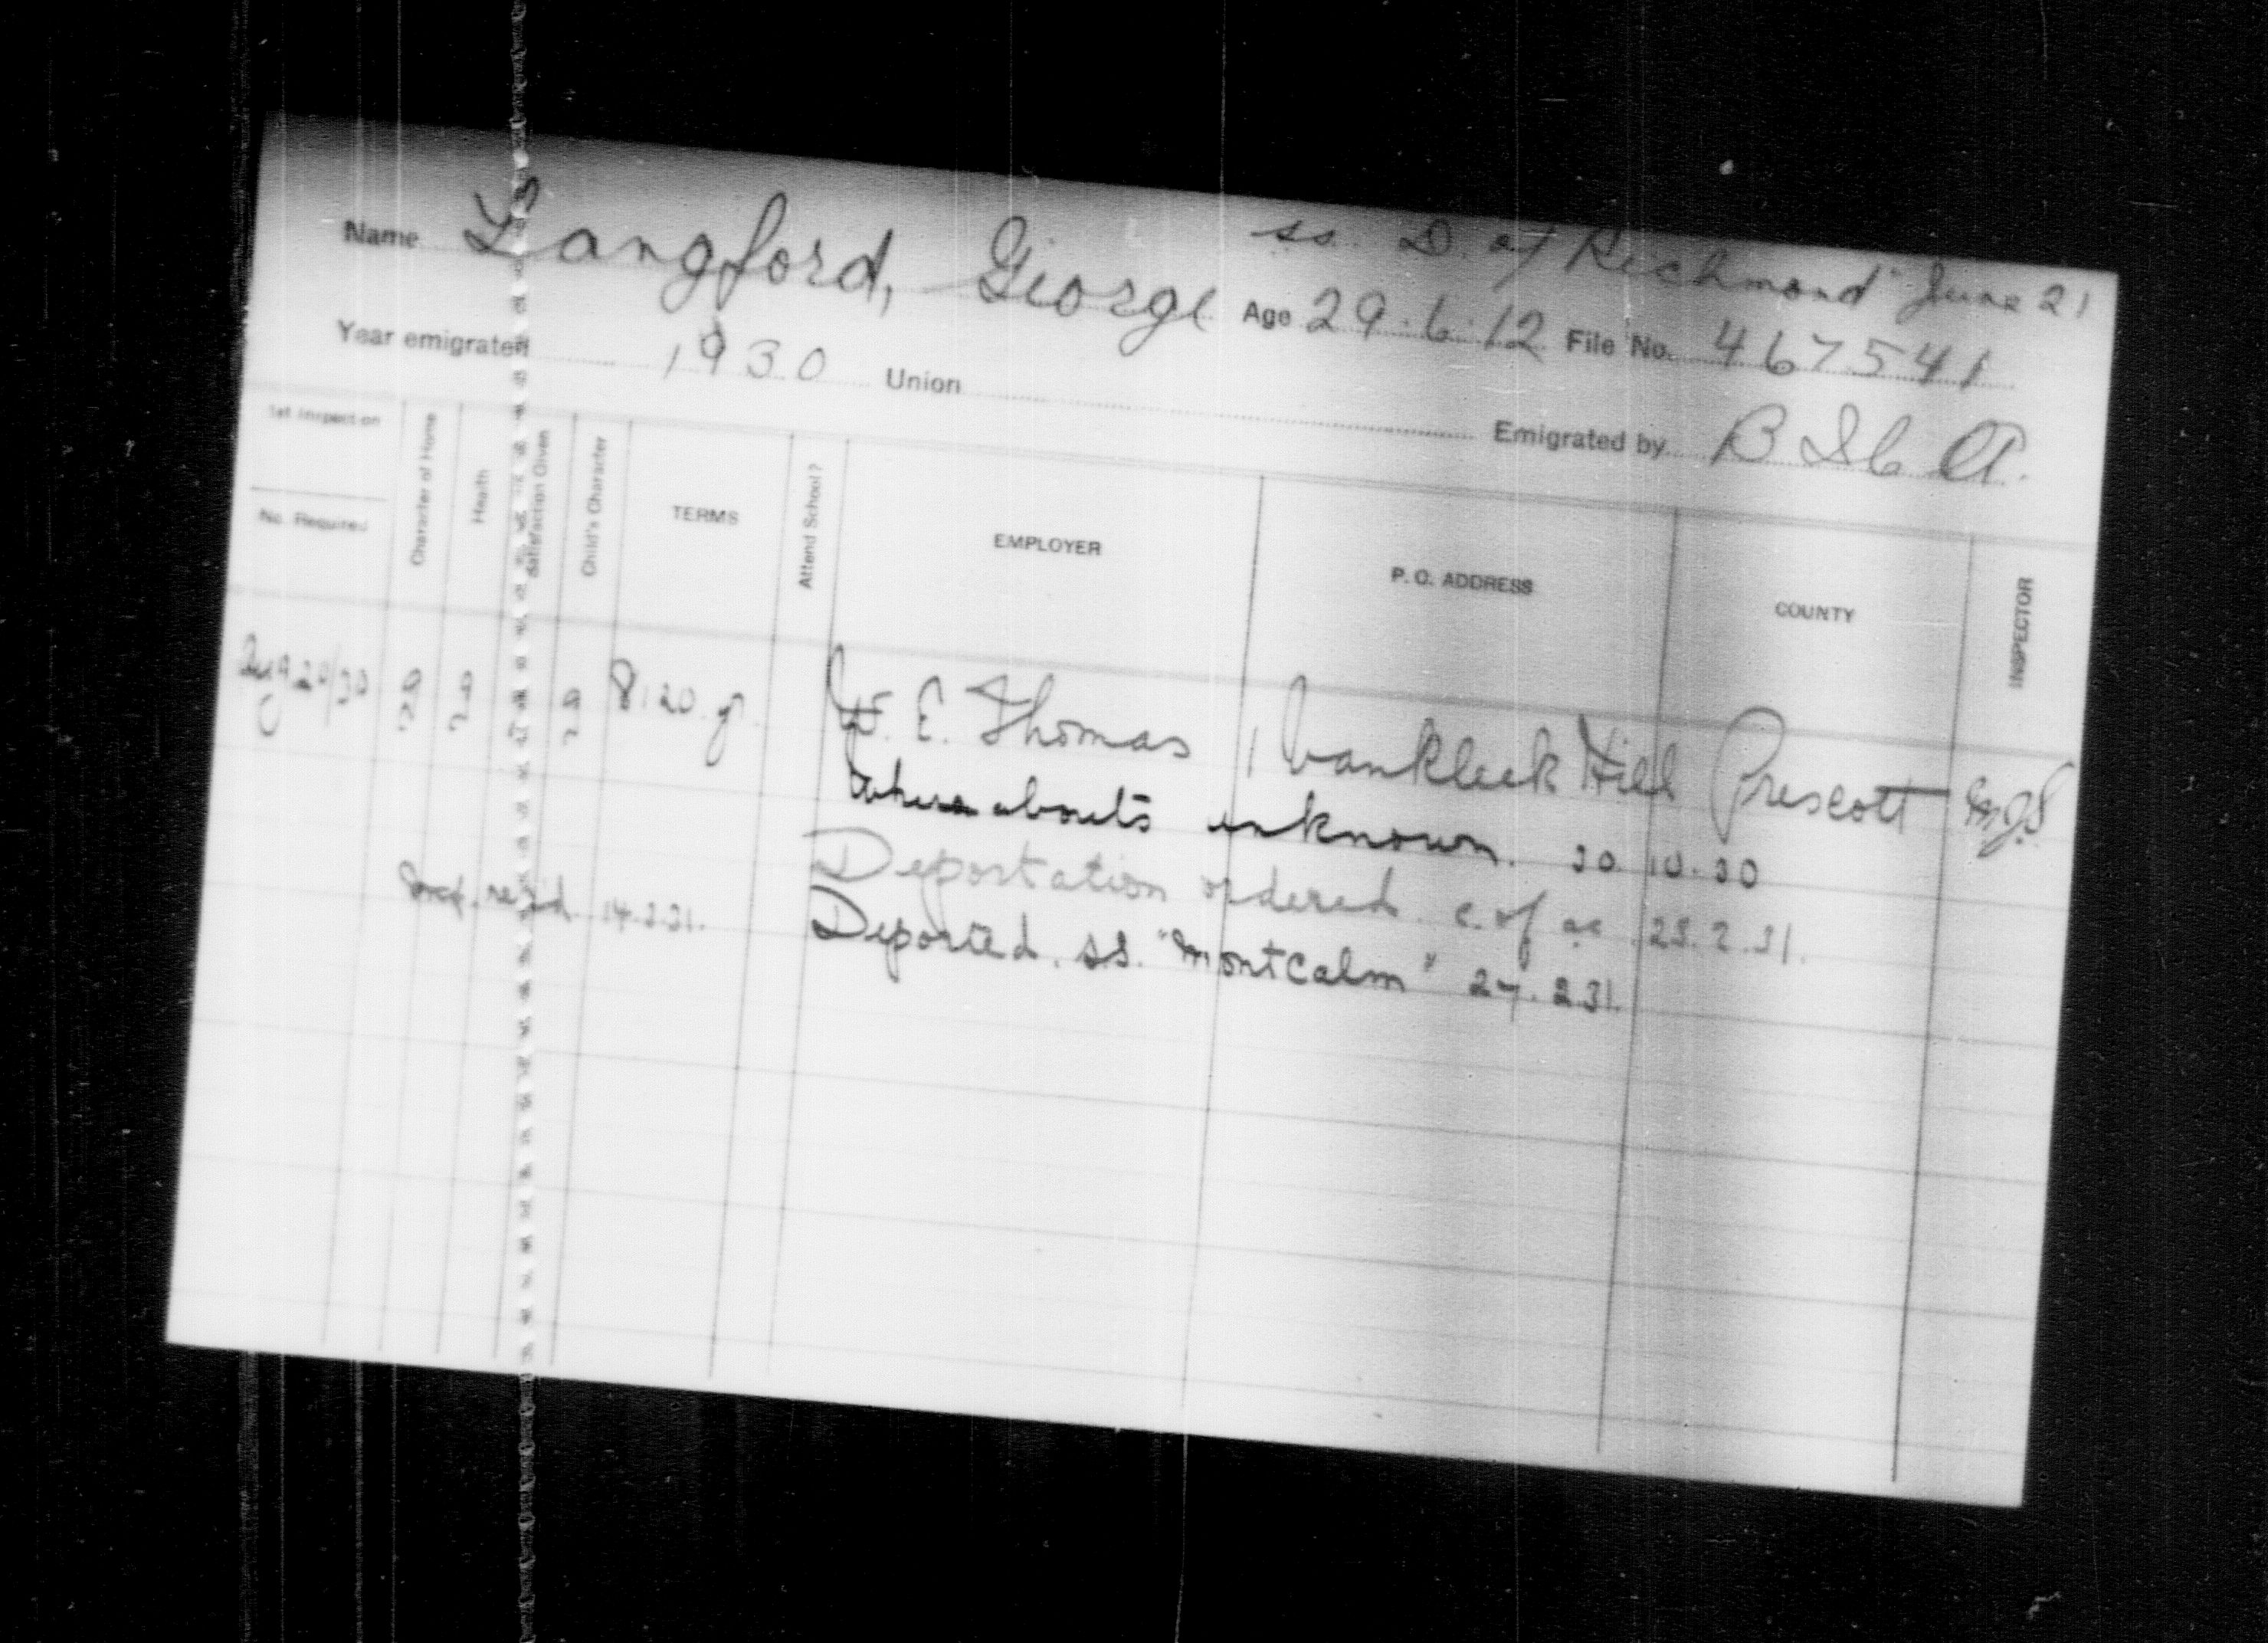 ss. D. of Richmond" June 21
Name Langford, George Age 29.6.12 File No. 467541
Year emigrated 1930 Union Emigrated by B I C A.
1st Inspection
No. Required
Character of Home
Health
Satisfaction Given
Child's Character
TERMS
Attend School?
EMPLOYER
P. O. ADDRESS
COUNTY
INSPECTOR
Aug 20/30 $120 yr. W. E. Thomas, Vankleek Hill Prescott
Whereabouts unknown. 30.10.30
Deportation ordered
rec'd 14.3.31. Deported. S.S. "Montcalm" 27.2.31.